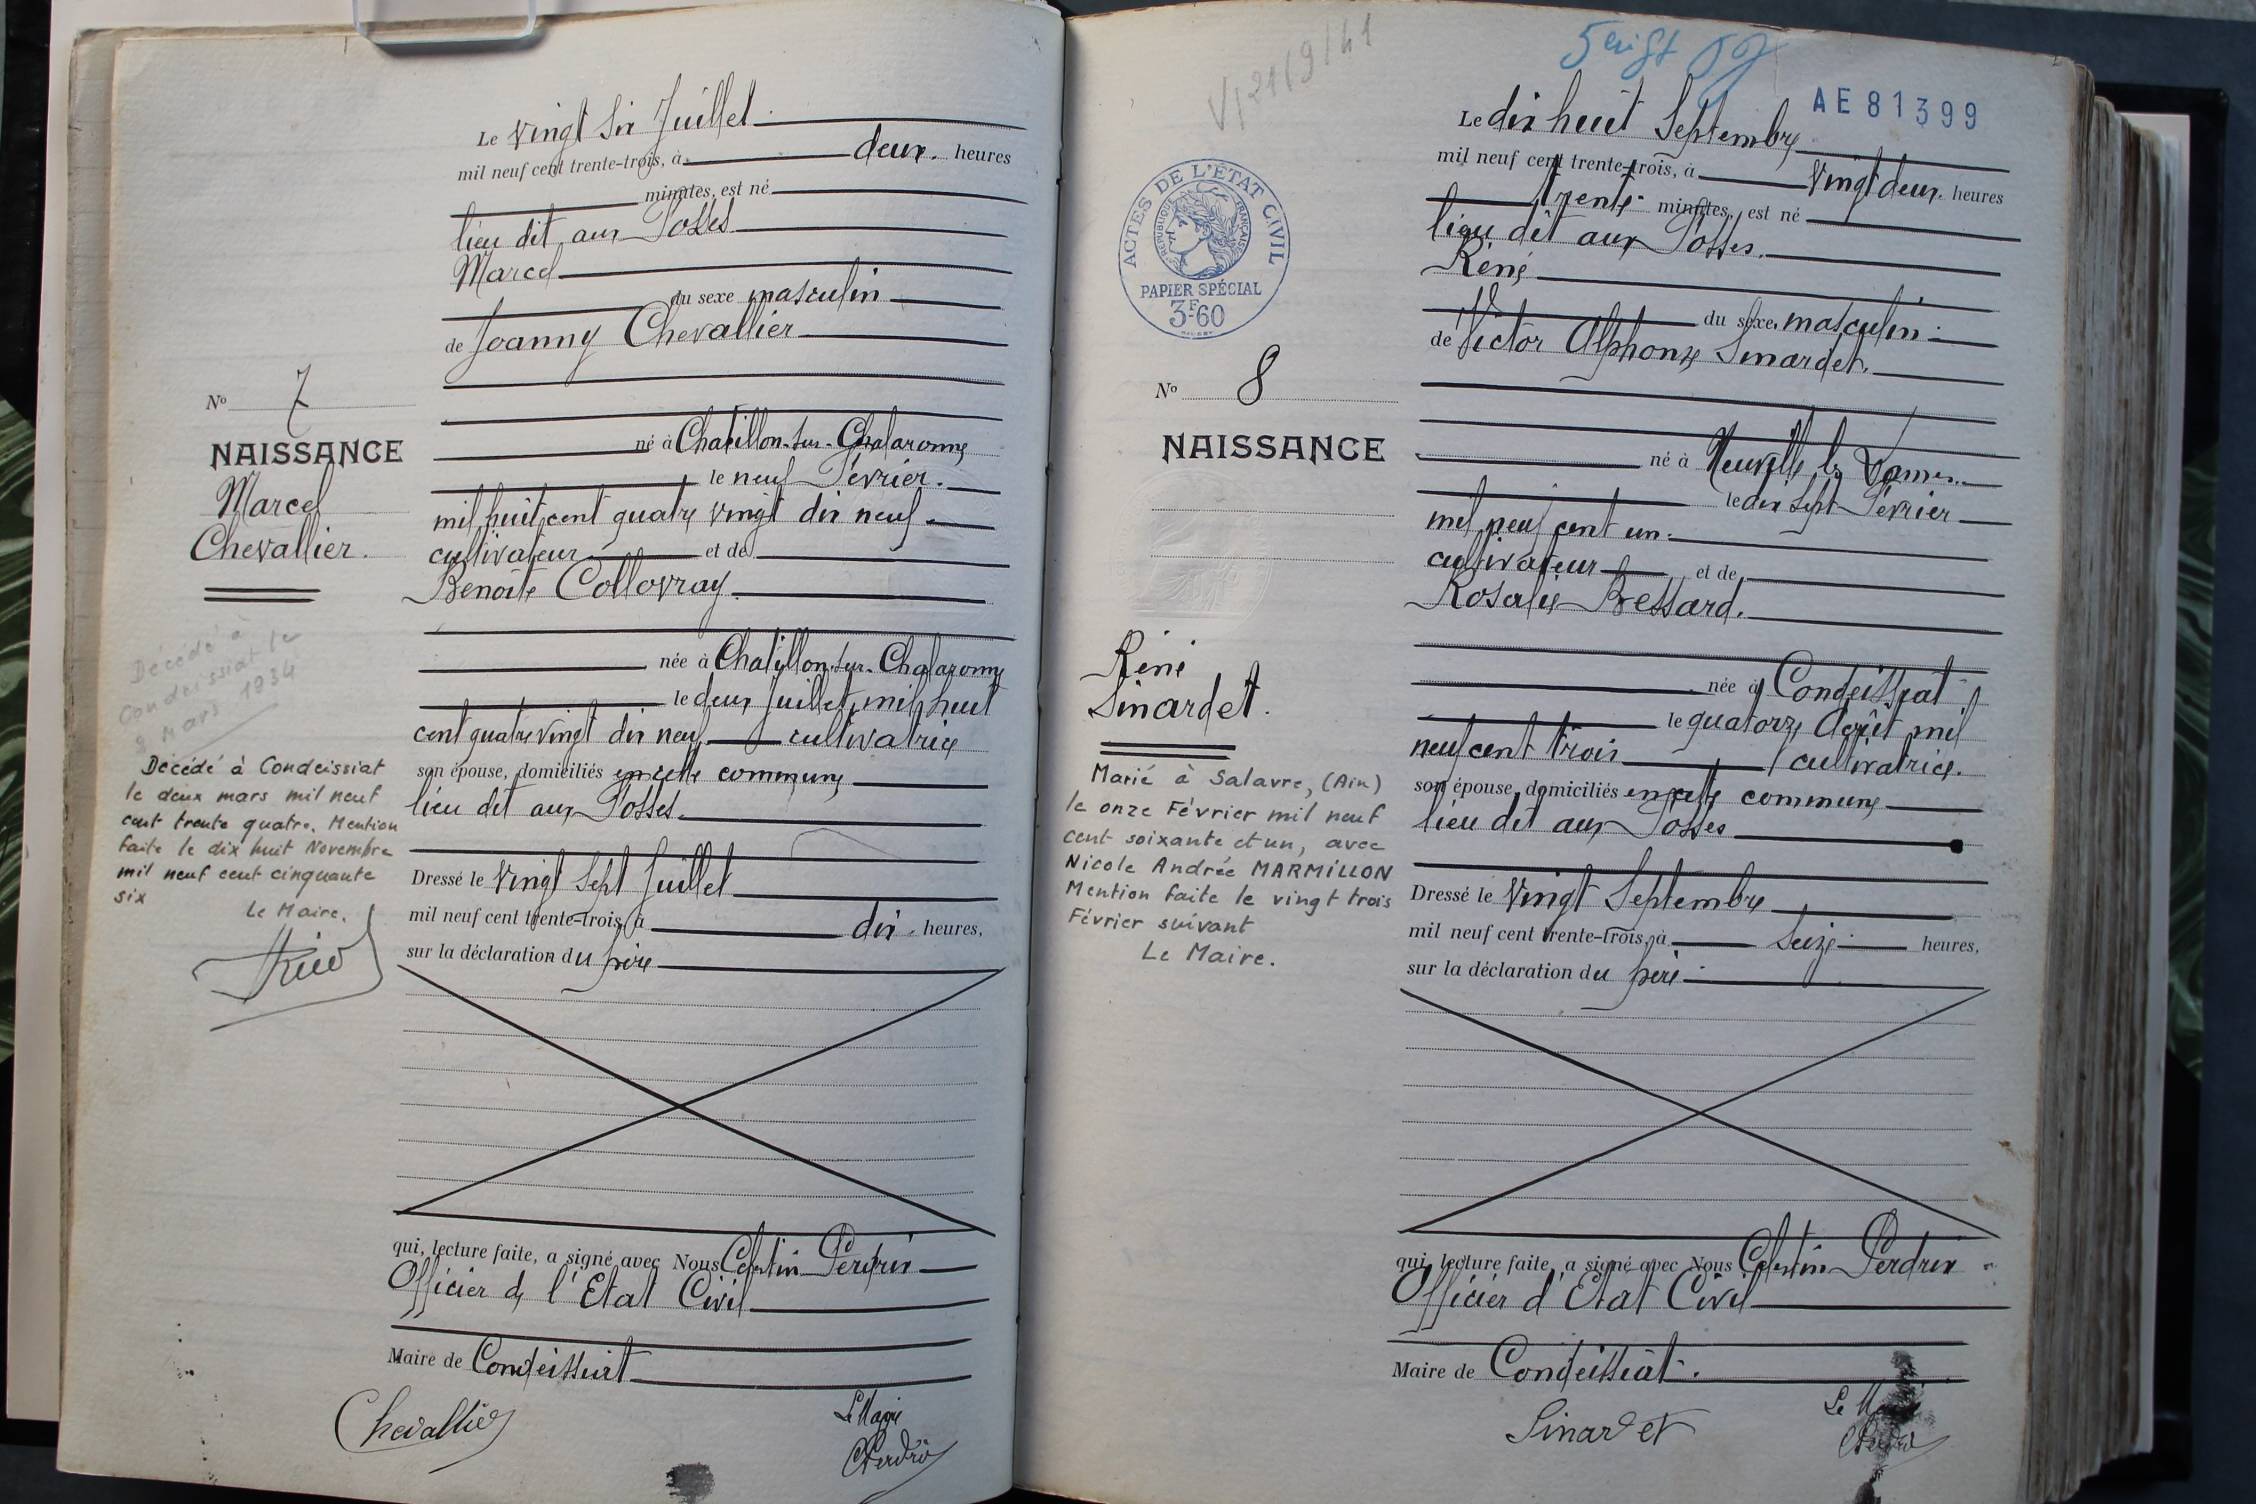 Le vingt six Juillet
mil neuf cent trente-trois, à deux heures
minutes, est né
lieu dit aux Fosses
Marcel
du sexe masculin
de Joanny Chevallier
né à Chatillon-sur-Chalaronne
le neuf Février.
mil huit cent quatre vingt dix neuf
cultivateur et de
Benoîte Collovray
née à Chatillon-sur-Chalaronne
le deux Juillet mil huit
cent quatre vingt dix neuf cultivatrice
son épouse, domiciliés en cette commune
lieu dit aux Fosses.
Dressé le vingt sept Juillet
mil neuf cent trente-trois, à dix heures,
sur la déclaration du père
qui, lecture faite, a signé avec Nous Célestin Perdrix
Officier de l'Etat Civil
Maire de Condeissiat
Chevallier
Le Maire
CPerdrix
No 7
NAISSANCE
Marcel
Chevallier.
Décédé à
Condeissiat le
2 Mars 1934
Décédé à Condeissiat
le deux mars mil neuf
cent trente quatre. Mention
faite le dix huit Novembre
mil neuf cent cinquante
six
Le Maire.
V/21/9/41
AE81399
Le dix huit Septembre
mil neuf cent trente-trois, à vingt deux heures
trente minutes, est né
lieu dit aux Fosses.
Réné
du sexe masculin
de Victor Alphonse Sinardet.
né à Neuville les Dames
le dix sept Février
mil neuf cent un.
cultivateur et de
Rosalie Bessard.
née à Condeissiat
le quatorze Août mil
neuf cent trois cultivatrice.
son épouse, domiciliés en cette commune
lieu dit aux Fosses
Dressé le vingt Septembre
mil neuf cent trente-trois, à seize heures,
sur la déclaration du père
qui, lecture faite, a signé avec Nous Célestin Perdrix
Officier d'Etat Civil
Maire de Condeissiat.
Sinardet
Le Maire
CPerdrix
ACTES DE L'ÉTAT CIVIL
RÉPUBLIQUE FRANÇAISE
PAPIER SPÉCIAL
3F60
No 8
NAISSANCE
Réné
Sinardet.
Marié à Salavre, (Ain)
le onze Février mil neuf
cent soixante et un, avec
Nicole Andrée MARMILLON
Mention faite le vingt trois
Février suivant
Le Maire.